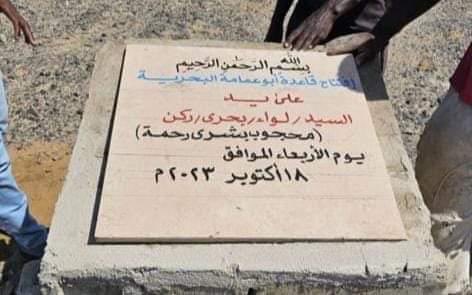 بسم الله الرحمن الرحيم
إفتتاح قاعدة أبوعمامة البحرية
على يد
السيد/لواء/بحرى/ركن
(محجوب بشرى رحمة)
يوم الأربعاء الموافق
١٨ أكتوبر ٢٠٢٣م